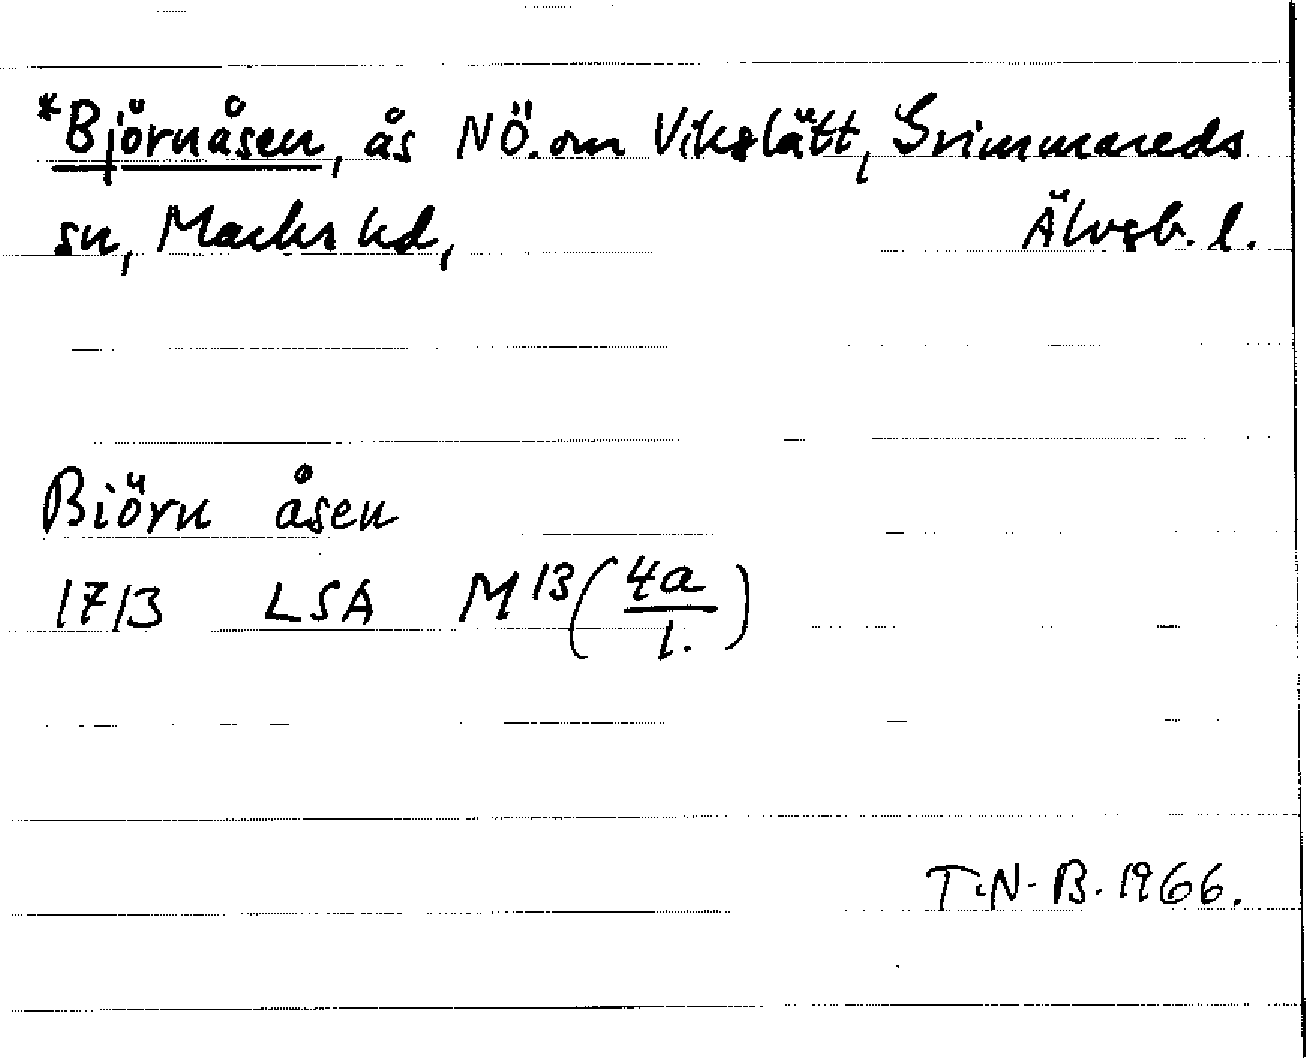 *Björnåsen, ås NÖ. om Vikslätt, Grimmareds
sn, Marks hd, Älvsb. l.
Biörn åsen
1713 LSA M 13 (4a/1.)
T.N-B. 1966.